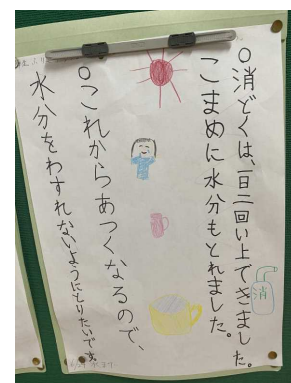 ○消どくは、一日二回い上できました。
こまめに水分もとれました。
消
○これからあつくなるので、
水分をわすれないようにとりたいです。